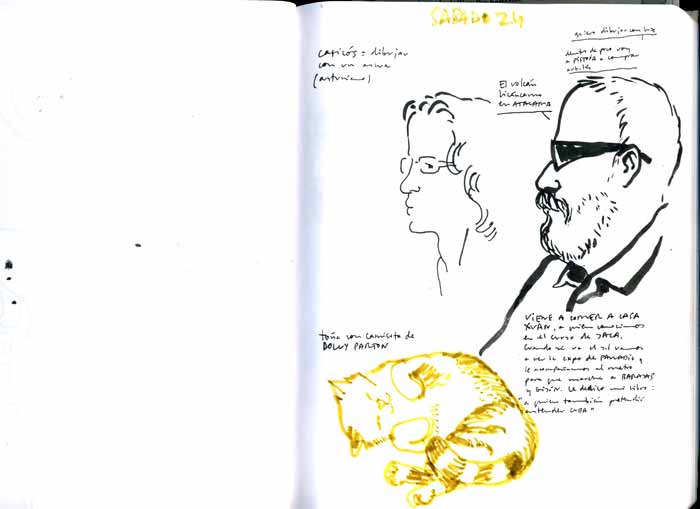 SABADO 24
quiero dibujar con luz
dentro de poco voy
a PISTOIA a comprar
caticós = dibujar
con un
(asturiano)
El volcán
Licáncamo
en ATACAMA
toña con camiseta de
DOLLY PARTON
VIENE A COMER A CASA
XUAN, a quien conocimos
en el curso de JACA.
Cuando se va el sol vamos
a ver la expo de PALLADIO y
le acompañamos al metro
para que marche a BARAJAS
y GIJÓN. Le dedico mi libro:
"a quien también pretendió
entender CUBA"